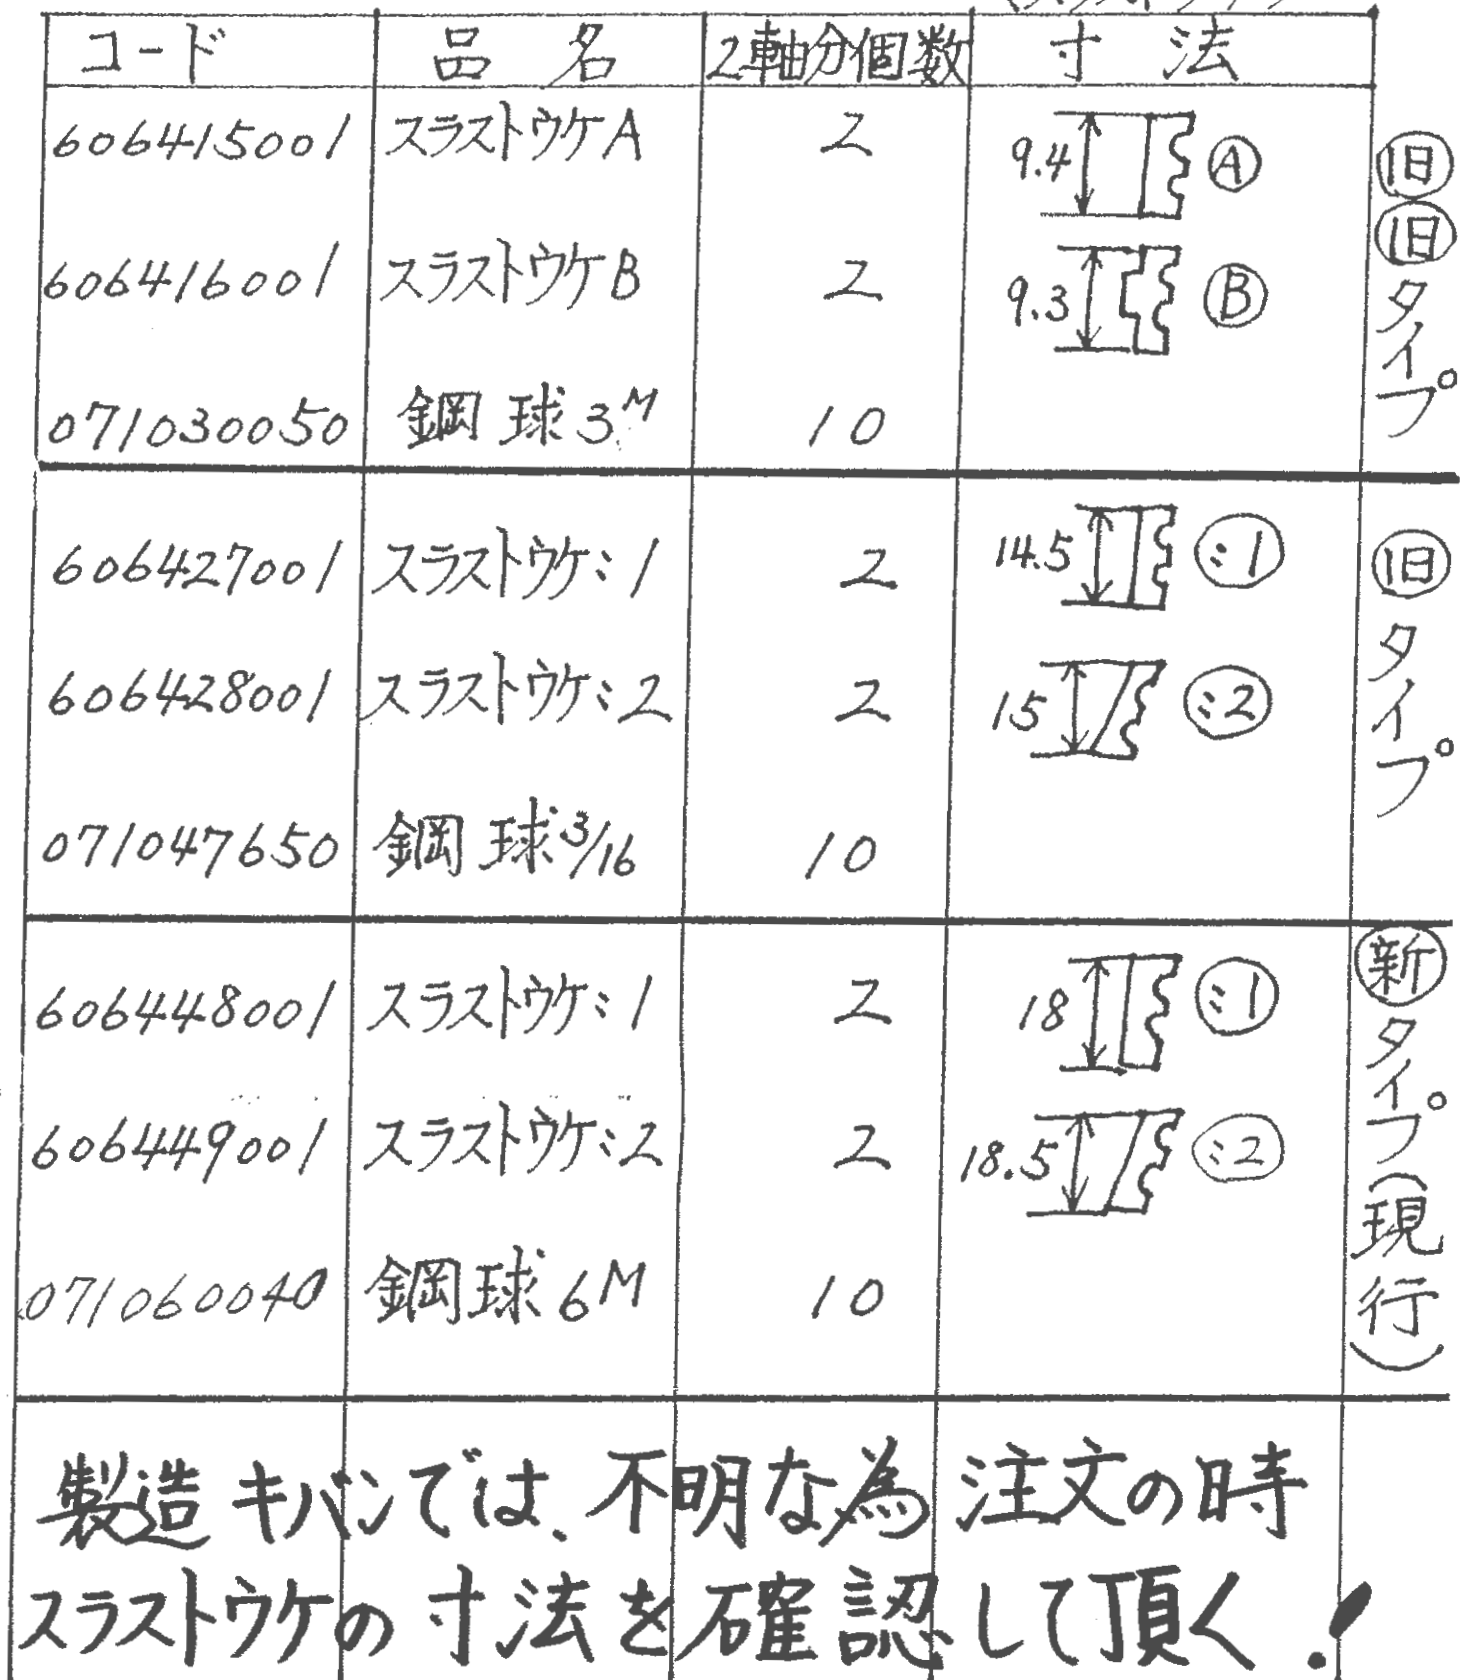 コード 品名 2軸分個数 寸法
606415001 スラストウケA 2 9.4 Ⓐ
606416001 スラストウケB 2 9.3 Ⓑ
071030050 鋼球3M 10
旧旧タイプ
606427001 スラストウケ:1 2 14.5 :1
606428001 スラストウケ:2 2 15 :2
071047650 鋼球3/16 10
旧タイプ
606448001 スラストウケ:1 2 18 :1
606449001 スラストウケ:2 2 18.5 :2
071060040 鋼球6M 10
新タイプ(現行)
製造キバンでは、不明な為注文の時
スラストウケの寸法を確認して頂く!